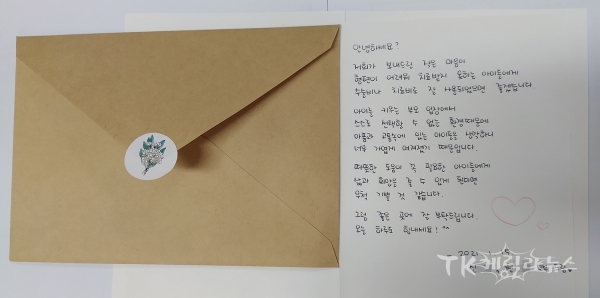 안녕하세요?
저희가 보내드린 작은 마음이
형편이 어려워 치료받지 못하는 아이들에게
수술비나 치료비로 잘 사용되었으면 좋겠습니다
아이들 키우는 부모 입장에서
스스로 선택할 수 없는 환경때문에
아픔과 고통속에 있는 아이들을 생각하니
너무 가엽게 여겨졌기 때문입니다.
따뜻한 도움이 꼭 필요한 아이들에게
삶과 희망을 줄 수 있게 된다면
무척 기쁠 것 같습니다.
그럼 좋은 곳에 잘 부탁드립니다.
오늘 하루도 힘내세요! ^^
TK케림라뉴스